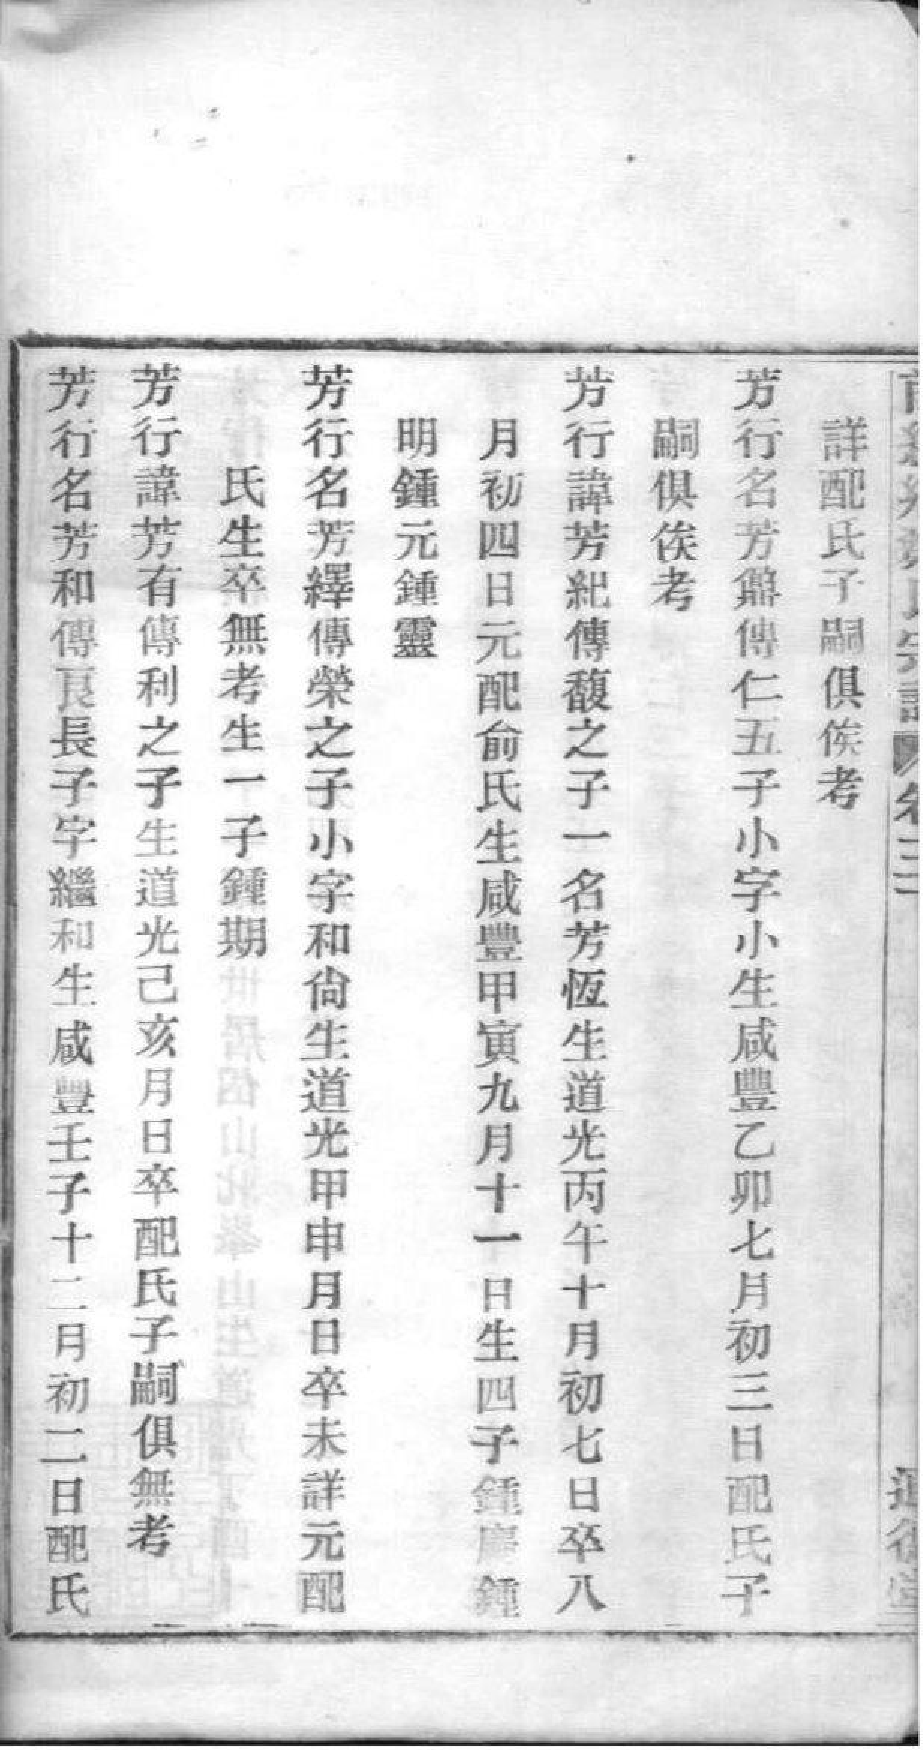 卷三十
詳配氏子嗣俱俟考
芳行名芳鼐傳仁五子小字小生咸豐乙卯七月初三日配氏子
嗣俱俟考
芳行諱芳紀傳馥之子一名芳恆生道光丙午十月初七日卒八
月初四日元配俞氏生咸豐甲寅九月十一日生四子鍾慶鍾
明鍾元鍾靈
芳行名芳繹傳榮之子小字和尙生道光甲申月日卒未詳元配
氏生卒無考生一子鍾期
芳行諱芳有傳利之子生道光己亥月日卒配氏子嗣俱無考
芳行名芳和傳良長子字繼和生咸豐壬子十二月初二日配氏